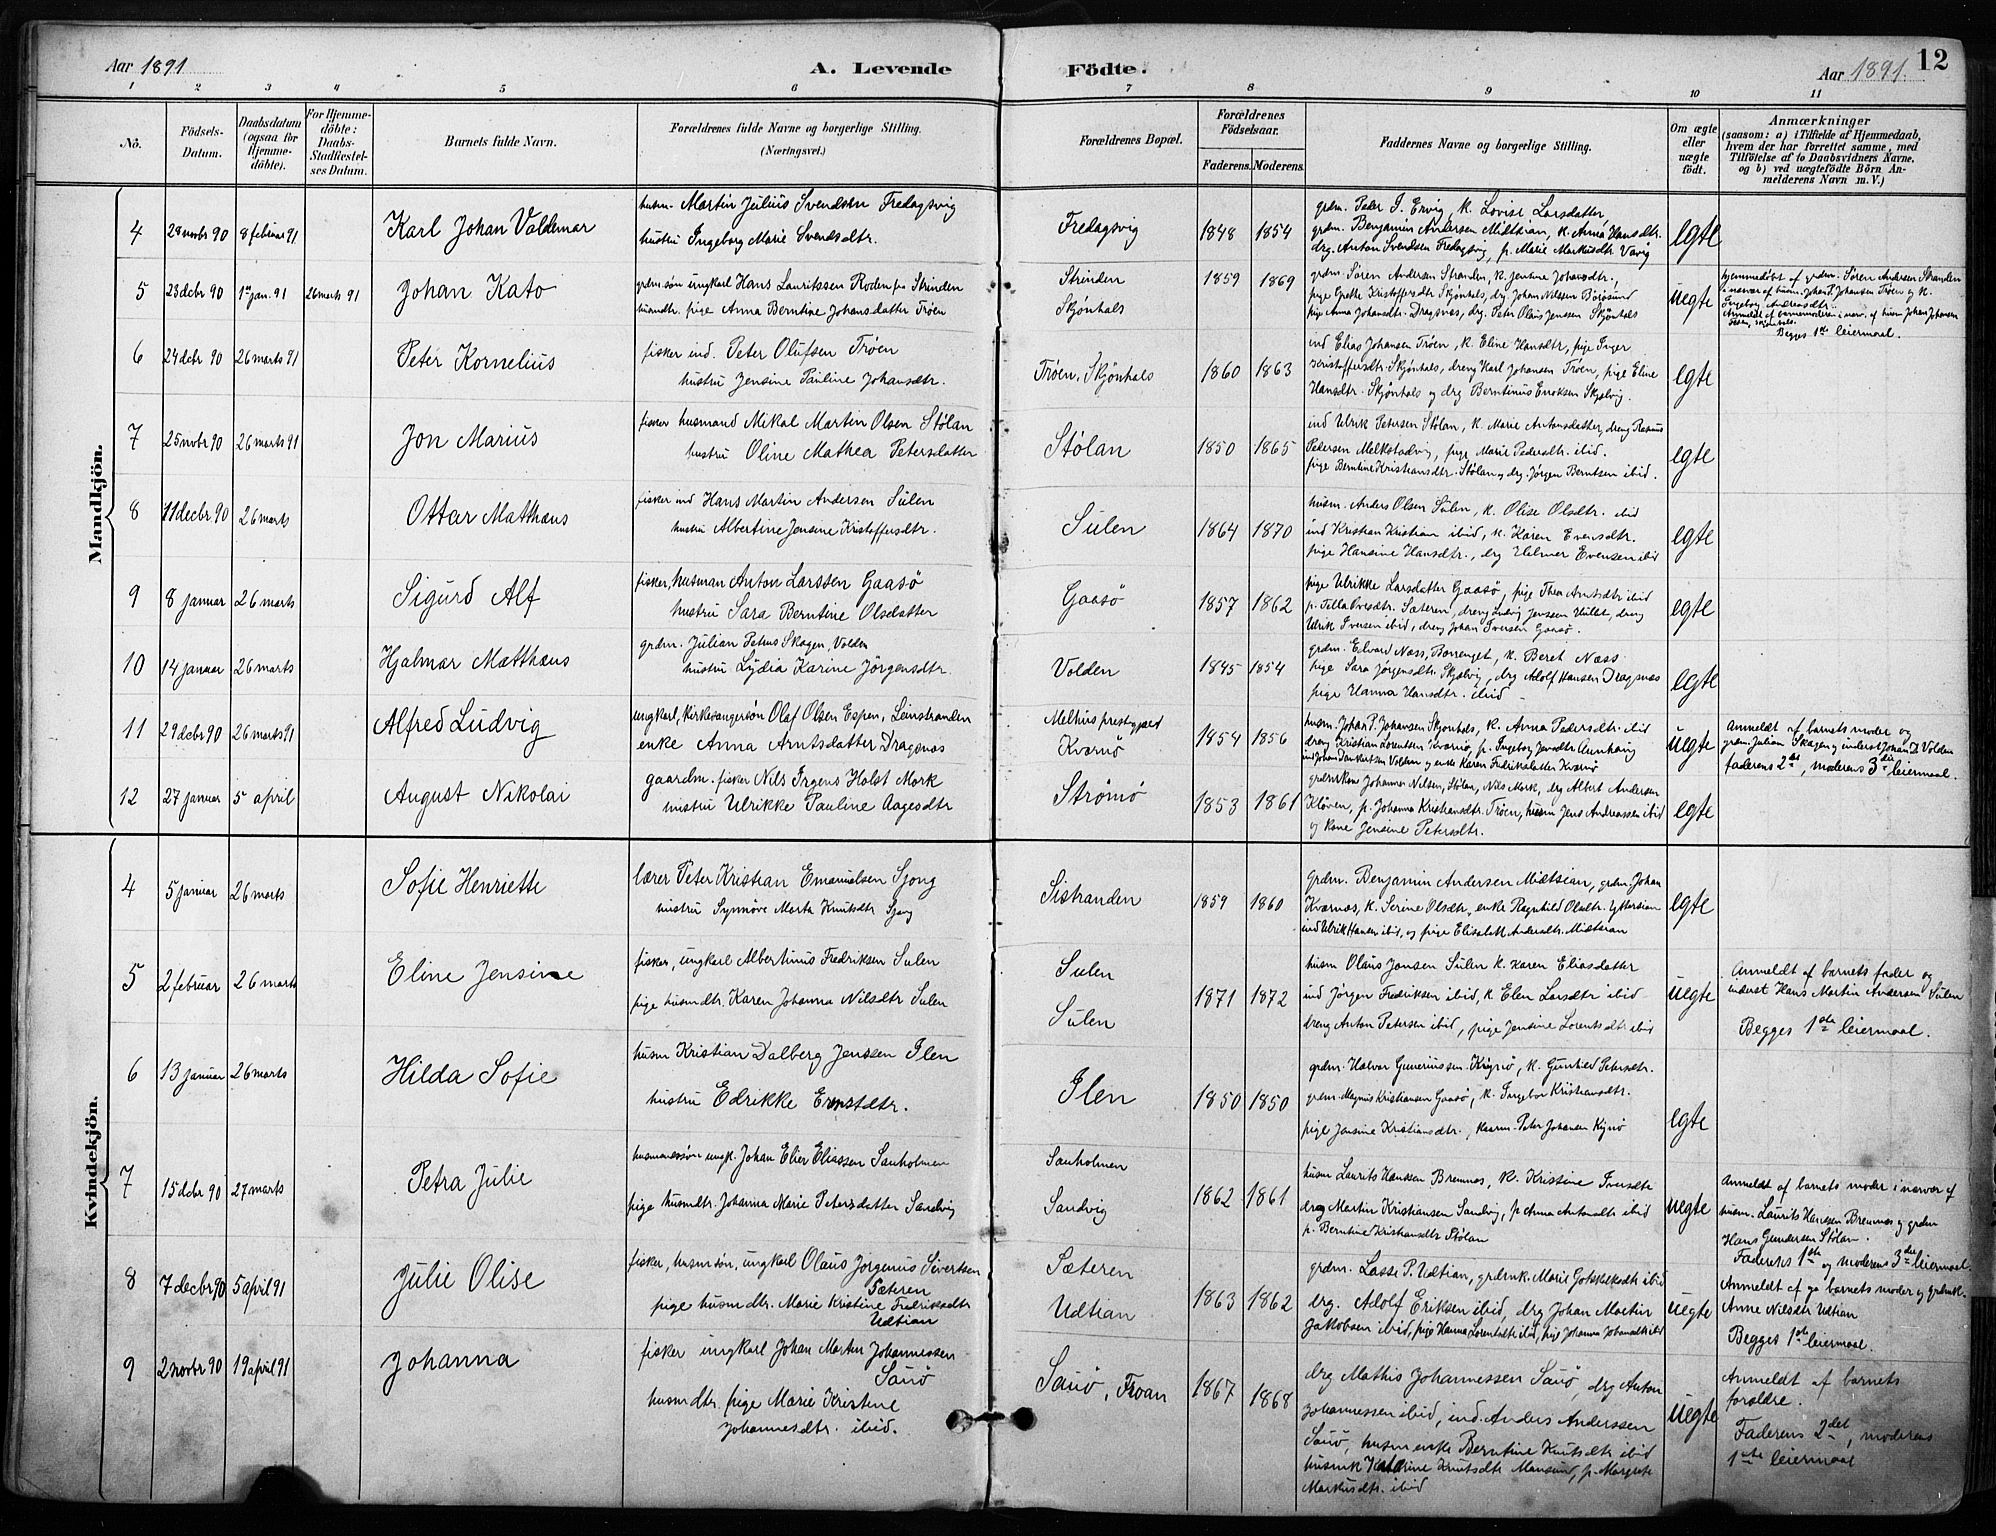 Aar 1891
A. Levende
Födte.
Aar 1891.
12
1 2 3 4 5 6 7 8 9 10 11
No.
Födsels-Datum.
Daabsdatum (ogsaa for Hjemme-döbte).
For Hjemme-döbte: Daabs-Stadfæstel-ses Datum.
Barnets fulde Navn.
Forældrenes fulde Navne og borgerlige Stilling.
(Næringsvei.)
Forældrenes Bopæl.
Forældrenes Födselsaar.
Faderens. Moderens.
Faddernes Navne og borgerlige Stilling.
Om ægte eller uægte födt.
Anmærkninger
(saasom: a) i Tilfælde af Hjemmedaab,
hvem der har forrettet samme, med
Tilföielse af to Daabsvidners Navne,
og b) ved uægtefödte Börn An-
melderens Navn m. V.)
Mandkjön.
4 28 novbr 90 8 februar 91 Karl Johan Valdemar
husm. Martin Julius Svendsen Fredagsvig
hustru Ingeborg Marie Svendsdtr.
Fredagsvig 1848 1854
grdm. Peter I. Ervig, k. Lovise Larsdatter,
grdm. Benjamin Andersen Midtsian, k. Anna Hansdtr.
drg. Anton Svendsen Fredagsvig, p. Marie Markusdtr Vavig
egte
5 23 dcbr 90 1ste jan. 91 26 marts 91 Johan Kato
grdm søn ungkarl Hans Lauritssen Roden fra Strinden
husmdtr. pige Anna Berntine Johansdatter Trøen
Strinden
Skjønhals
1859 1869
grdm. Søren Andersen Stranden, k. Jentine Johansdtr.,
pige Grethe Kristoffersdtr Skjønhals, drg. Johan Nilssen Borøsund
pige Anna Johansdtr. Dragsnæs, drg. Peter Olaus Jenssen Skjønhals
uegte
hjemmedøbt af grdm. Søren Andersen Stranden
i nærvær af husm. Johan P. Johansen Trøen og k.
Ingeborg Andreasdtr.
Begges 1ste leiermaal.
6 24 dcbr 90 26 marts 91 Peter Kornelius
fisker ind. Peter Olufsen Trøen
hustru Jensine Pauline Johansdtr.
Trøen, Skjønhals 1860 1863
ind Elias Johansen Trøen, k. Eline Hansdtr, pige Inger
Kristoffersdtr Skjønhals, dreng Karl Johansen Trøen, pige Eline
Hansdtr. Skjønhals og drg Berntinus Enoksen Skjølvig.
egte
7 25 novbr 90 26 marts 91 Jon Marius
fisker husmand Mikal Martin Olsen Stølan
hustru Oline Mathea Petersdatter
Stølan 1850 1865
ind Ulrik Petersen Stølan, k. Marie Antonsdatter, dreng Rasmus
Pedersen Melkstadvig, pige Marie Pedersdtr. ibid.
pige Berntine Kristiansdtr. Stølan, drg. Jørgen Berntsen ibid.
egte
8 11 decbr. 90 26 marts Ottar Matthæus
fisker ind Hans Martin Andersen Sulen
hustru Albertine Jensine Kristoffersdtr.
Sulen 1864 1870
husm. Anders Olsen Sulen, k. Olise Olsdtr. ibid
ind Kristian Kristian ibid, k. Karen Evensdtr.
pige Hansine Hansdtr., drg Helmer Evensen ibid
egte
9 8 januar 26 marts Sigurd Alf
fisker, husman Anton Larssen Gaasø
hustru Sara Berntine Olsdatter
Gaasø 1857 1862
pige Ulrikke Larsdatter Gaasø, pige Thea Arntsdtr ibid
Sæteren, dreng Ludvig Jenssen Hullet, dreng
Ulrik Iversen ibid, dreng Johan Iversen Gaasø.
egte
10 14 januar 26 marts Hjalmar Matthæus
grdm. Julian Petrus Skagen, Volden
hustru Lydia Karine Jörgensdtr.
Volden 1845 1854
grdm. Edvard Næss, Borrenget, k. Beret Næss
pige Sara Jørgensdtr. Skjølvig, drg Adolf Hansen Dragsnæs
pige Hanna Hansdtr. ibid.
egte
11 29 dcbr 90 26 marts 91 Alfred Ludvig
ungkarl, kirkesangersøn Olaf Olsen Espen, Leinstranden
enke Anna Arntsdatter Dragsnæs
Melhus prestegjæld
Kvernø
1854 1856
husm. Johan P. Johansen Skjønhals, k. Anna Pedersdtr. ibid
dreng Kristian Lorentsen Kvarnø, p. Ingeborg Jensdtr Aunhaug
ind Johan Dankertsen Volden og enke Karen Fredriksdatter Kvarnø
uegte
Anmeldt af barnets moder og
grdm. Julian Skagen, inderst Johan D. Volden
faderens 2det, moderens 3die leiermaal.
12 27 januar 5 april August Nikolai
gaardm. fisker Nils Irgens Holst Mork
hustru Ulrikke Pauline Aagesdtr
Strømø 1853 1861
grdmskone Johanna Nilsen, Stølan, Nils Mork, drg Albert Andersen
Kløven, p. Johanna Kristiansdtr. Trøen, husm Jens Andreassen ibid
og kone Jensine Petersdtr.
egte
Kvindekjön.
4 5 januar 26 marts Sofie Henriette
lærer Peter Kristian Emanuelsen Sjong
hustru Synnöve Marta Knutsdtr Sjong
Sistranden 1859 1860
grdm. Benjamin Andersen Midtsian, grdm. Johan
Kvernæs, k. Serine Olsdtr, enke Ragnhild Olsdtr. Yttersian
ind Ulrik Hansen ibid, og pige Elisabeth Andersdtr. Midtsian
egte
5 2 februar 26 marts Eline Jensine
fisker, ungkarl Albertinus Fredriksen Sulen
pige husmdtr. Karen Johanna Nilsdtr Sulen
Sulen
Sulen
1871 1872
husm Olaus Jonsen Sulen k. Karen Eliasdatter
ind Jörgen Fredriksen ibid, k. Elen Larsdtr ibid
dreng Anton Petersen ibid, pige Jensine Lorentsdtr ibid
uegte
Anmeldt af barnets fader og
inderst Hans Martin Andersen Sulen
Begges 1ste leiermaal.
6 13 januar 26 marts Hilda Sofie
husm Kristian Dalberg Jenssen Ilen
hustru Edrikke Ernstdtr.
Ilen 1850 1850
grdm. Halvor Gunerius sen. Kiynø, k. Gunhild Petersdtr.
grdm. Magnus Kristiansen Gaasø, k. Ingebor Kristiansdtr.
pige Jensine Kristiansdtr., kaarm. Peter Johansen Kiynø
egte
7 15 dcbr 90 27 marts Petra Julie
husmandssøn ungk. Johan Elier Eliassen Sauholmen
pige husmdtr. Johanna Marie Petersdatter Sandvig
Sauholmen
Sandvig
1862 1861
husm Laurits Hanssen Bremnes, k. Kristine
drg Martin Kristiansen Sandvig, p. Anna Antonsdtr ibid
p. Berntine Kristiansdtr Stølan
uegte
Anmeldt af barnets moder i nærvær af
husm. Laurits Hanssen Bremnes og grdm
Hans Gundersen Stølan.
Faderens 1ste og moderens 3die leiermaal.
8 7 decbr 90 5 april 91 Julie Olise
fisker, husmsøn, ungkarl Olaus Jørginus Sivertsen
Sæteren
pige husmdtr. Marie Kristine Fredriksdtr
Udtian
Sæteren
Udtian
1863 1862
grdm. Lasse P. Udtian, grdmk. Marie Gotskalkdtr ibid
drg. Adolf Eriksen ibid, drg Johan Martin
Jakobsen ibid, pige Hanna Lorentsdtr ibid, pige Johanna Johansdtr ibid
uegte
Anmeldt af ga barnets moder og grdmk.
Anne Nilsdtr Udtian
Begges 1ste leiermaal.
9 2 novbr 90 19 april 91 Johanna
fisker ungkarl Johan Martin Johannessen
Sauø
husmdtr. pige Marie Kristine
Johannesdtr. ibid.
Sauø, Froan 1867 1868
drg Mathis Johannessen Sauø, drg Anton
Johannessen ibid, ind. Anders Anderssen
Sauø, husm enke Berntine Knutsdtr ibid
husmk Katarine Knutsdtr Mausund, p. Margrete
Markusdtr. ibid
uegte
Anmeldt af barnets
forældre.
Faderens 2det, moderens
1ste leiermaal